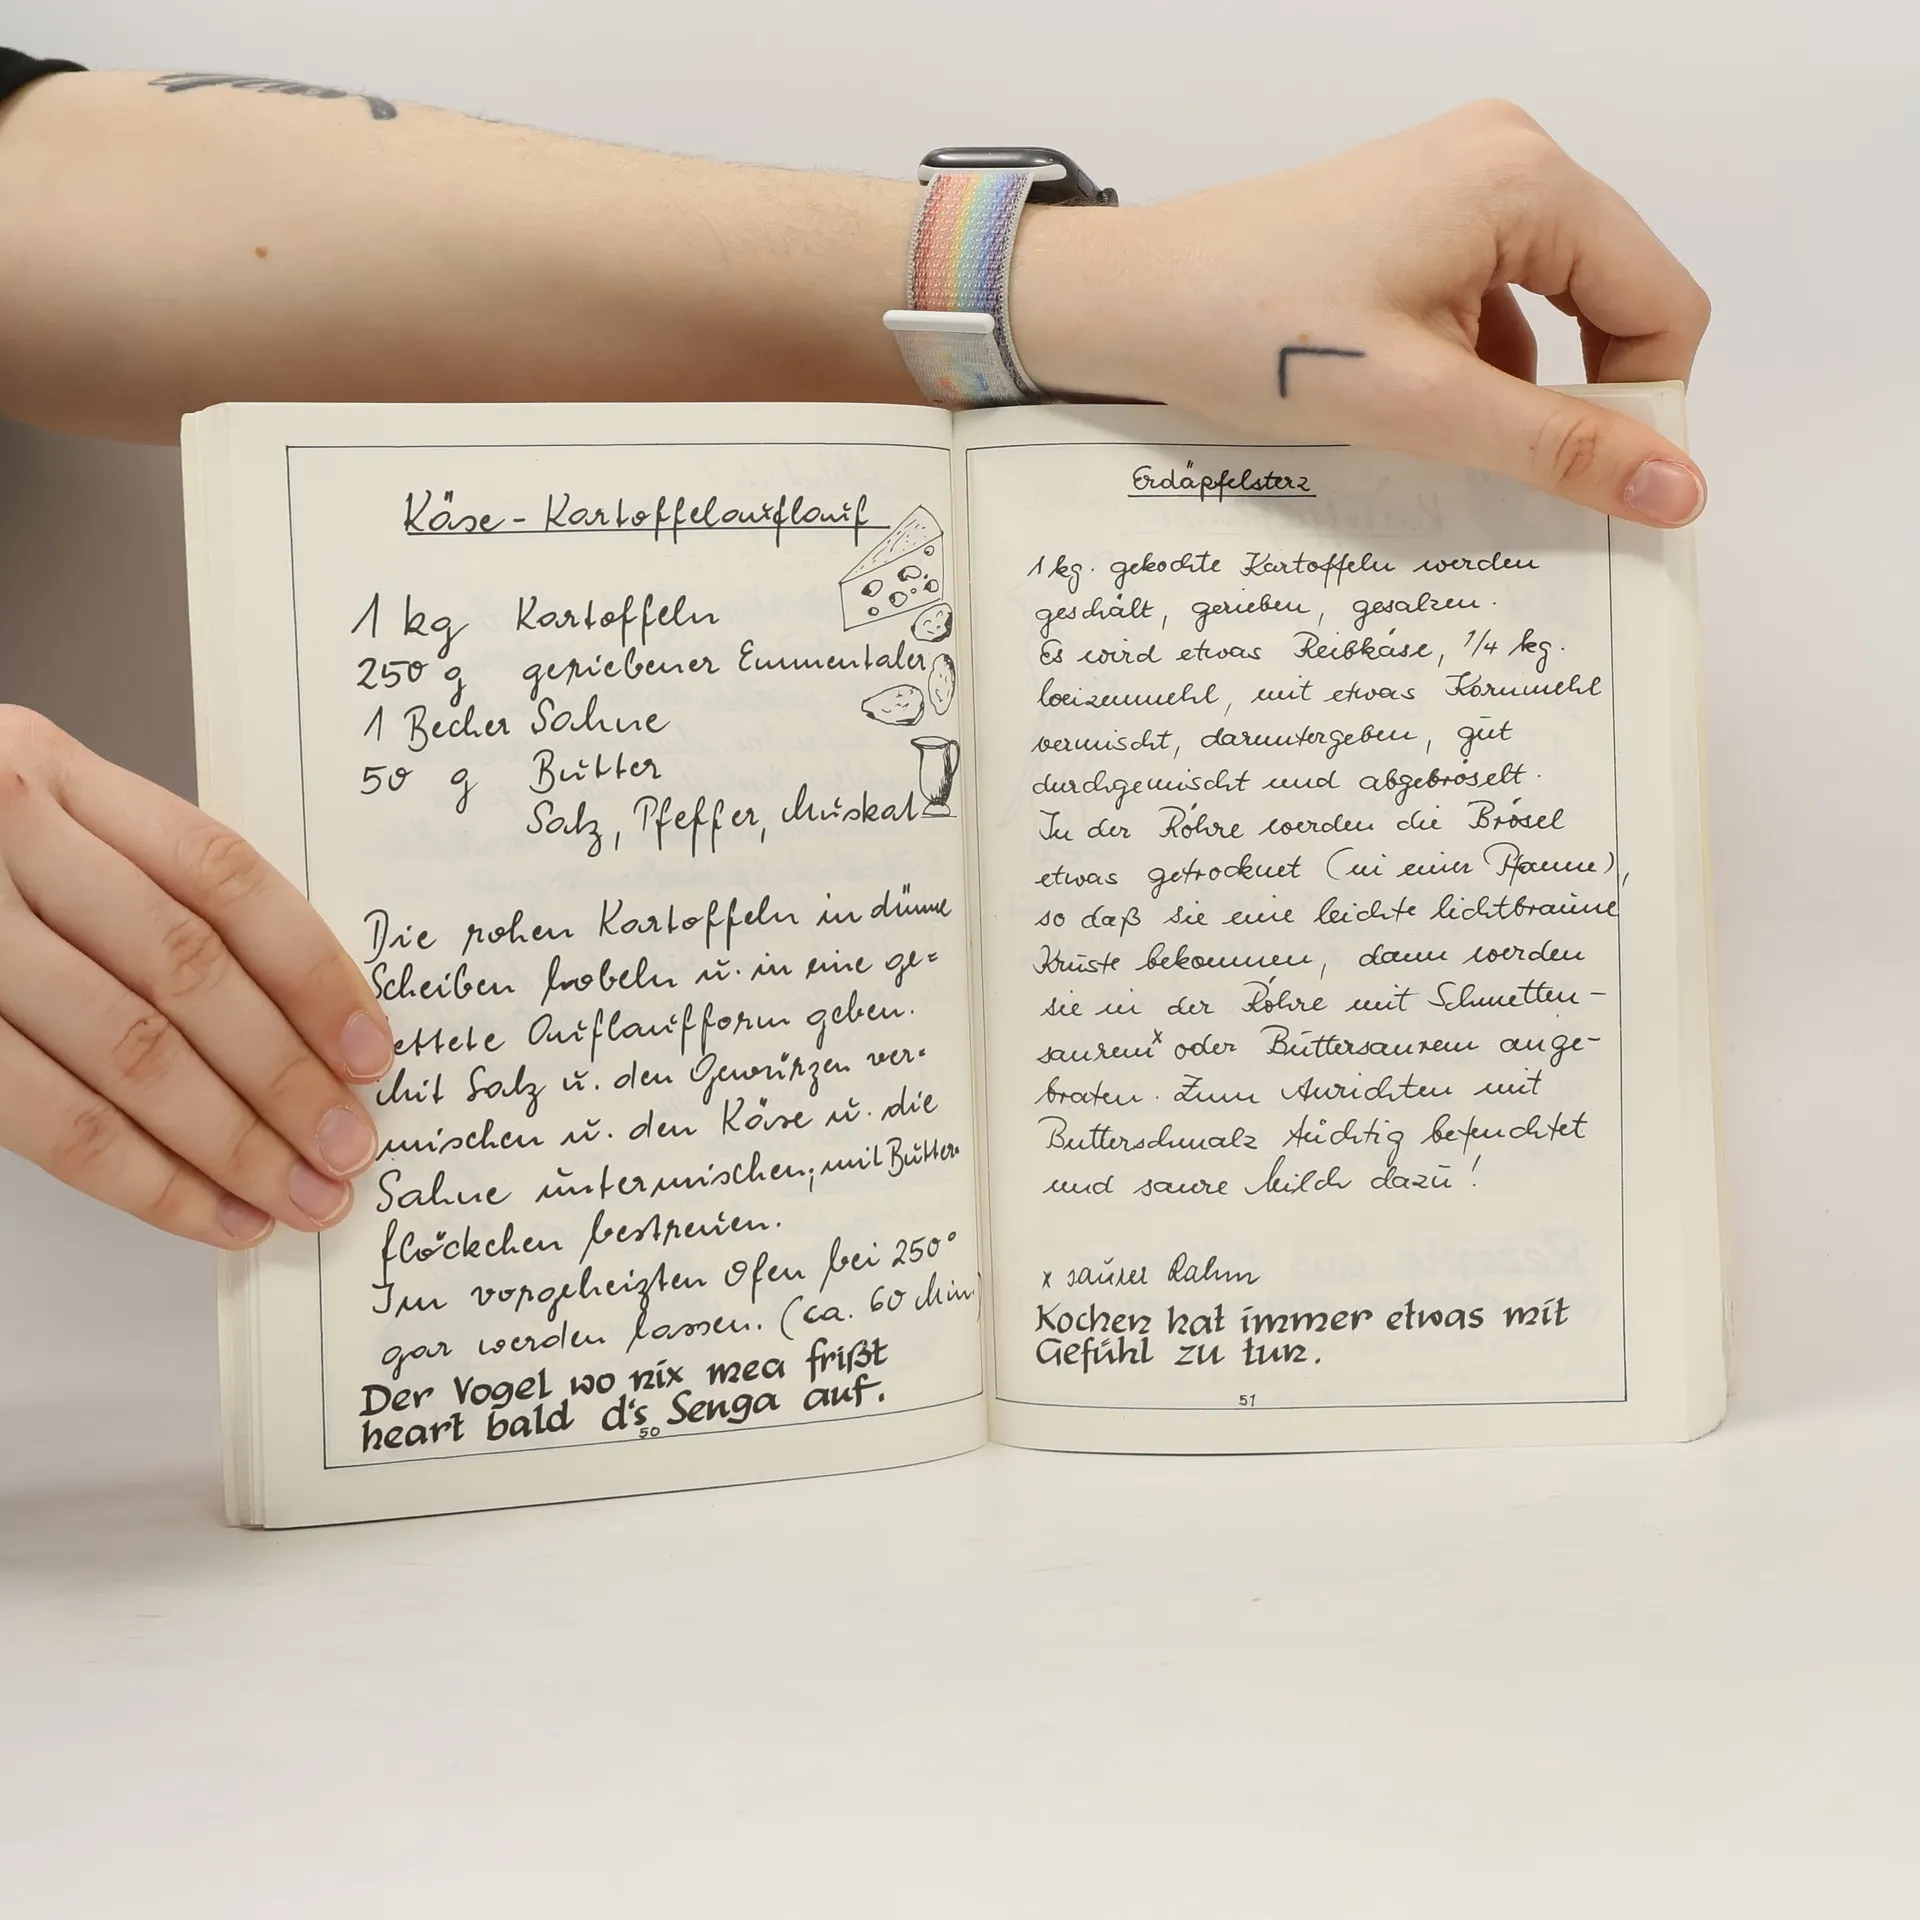 Käse-Kartoffelauflauf
1 kg Kartoffeln
250 g geriebener Emmentaler
1 Becher Sahne
50 g Butter
Salz, Pfeffer, Muskat
Die rohen Kartoffeln in dünne
Scheiben hobeln u. in eine ge=
ettete Auflaufform geben.
Mit Salz u. den Gewürzen ver=
mischen u. den Käse u. die
Sahne untermischen; mit Butter=
flöckchen bestreuen.
Im vorgeheizten Ofen bei 250°
gar werden lassen. (ca. 60 Min)
Der Vogel wo nix mea frißt
heart bald d's Senga auf.
50
Erdäpfelsterz
1 kg. gekochte Kartoffeln werden
geschält, gerieben, gesalzen.
Es wird etwas Reibkäse, 1/4 kg.
Weizenmehl, mit etwas Kornmehl
vermischt, daruntergeben, gut
durchgemischt und abgebröselt.
In der Röhre werden die Brösel
etwas getrocknet (in einer Pfanne),
so daß sie eine leichte lichtbraune
Kruste bekommen, dann werden
sie in der Röhre mit Schmetten-
saurem x oder Buttersaurem ange-
braten. Zum Anrichten mit
Butterschmalz tüchtig befeuchtet
und saure Milch dazu!
x saurer Rahm
Kochen hat immer etwas mit
Gefühl zu tun.
51